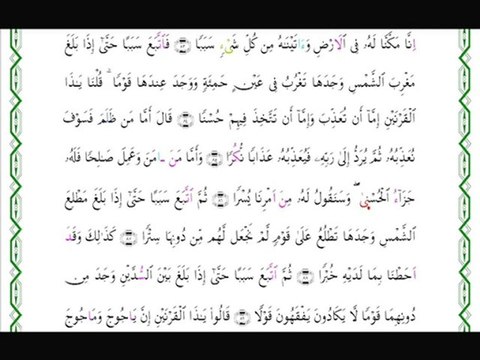 إِنَّا مَكَّنَّا لَهُۥ فِى الَارْضِ وَءَاتَيْنَٰهُ مِن كُلِّ شَىْءٍ سَبَبًا فَاتَّبَعَ سَبَبًا حَتَّىٰ إِذَا بَلَغَ
مَغْرِبَ الشَّمْسِ وَجَدَهَا تَغْرُبُ فِى عَيْنٍ حَمِئَةٍ وَوَجَدَ عِندَهَا قَوْمًا قُلْنَا يَٰذَا
الْقَرْنَيْنِ إِمَّا أَن تُعَذِّبَ وَإِمَّا أَن تَتَّخِذَ فِيهِمْ حُسْنًا قَالَ أَمَّا مَن ظَلَمَ فَسَوْفَ
نُعَذِّبُهُۥ ثُمَّ يُرَدُّ إِلَىٰ رَبِّهِۦ فَيُعَذِّبُهُۥ عَذَابًا نُّكُرًا وَأَمَّا مَنَ ـامَنَ وَعَمِلَ صَٰلِحًا فَلَهُۥ
جَزَآءُ الْحُسْنىٰ وَسَنَقُولُ لَهُۥ مِنَ امْرِنَا يُسْرًا ثُمَّ اتَّبَعَ سَبَبًا حَتَّىٰ إِذَا بَلَغَ مَطْلِعَ
الشَّمْسِ وَجَدَهَا تَطْلُعُ عَلَىٰ قَوْمٍ لَّمْ نَجْعَل لَّهُم مِّن دُونِهَا سِتْرًا كَذَٰلِكَ وَقَدَ
احَطْنَا بِمَا لَدَيْهِ خُبْرًا ثُمَّ اتَّبَعَ سَبَبًا حَتَّىٰ إِذَا بَلَغَ بَيْنَ السُّدَّيْنِ وَجَدَ مِن
دُونِهِمَا قَوْمًا لَّا يَكَادُونَ يَفْقَهُونَ قَوْلًا قَالُوا يَٰذَا الْقَرْنَيْنِ إِنَّ يَاجُوجَ وَمَاجُوجَ